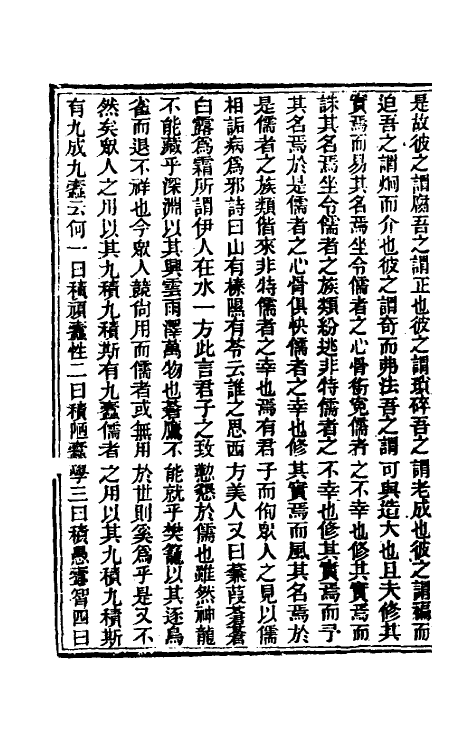 是故彼之謂腐吾之謂正也彼之謂瑣碎吾之謂老成也彼之謂褊而
迫吾之謂炯而介也彼之謂奇而弗法吾之謂可與造大也且夫修其
實焉而易其名焉坐令儒者之心骨銜冤儒者之不幸也修其實焉而
誅其名焉坐令儒者之族類紛逃非特儒者之不幸也修其實焉而予
其名焉於是儒者之心骨俱快儒者之幸也修其實焉而風其名焉於
是儒者之族類偕來非特儒者之幸也焉有君子而徇眾人之見以儒
相詬病為邪詩曰山有榛隰有苓云誰之思西方美人又曰蒹葭蒼蒼
白露為霜所謂伊人在水一方此言君子之致懃懇於儒也雖然神龍
不能藏乎深淵以其興雲雨澤萬物也蒼鷹不能就乎樊籠以其逐鳥
雀而退不祥也今眾人饒尙用而儒者或無用於世則奚為乎是又不
然矣眾人之用以其九積九積斯有九蠹儒者之用以其九積九積斯
有九成九蠹云何一曰積頑蠹性二曰積陋蠹學三曰積愚蠹智四曰